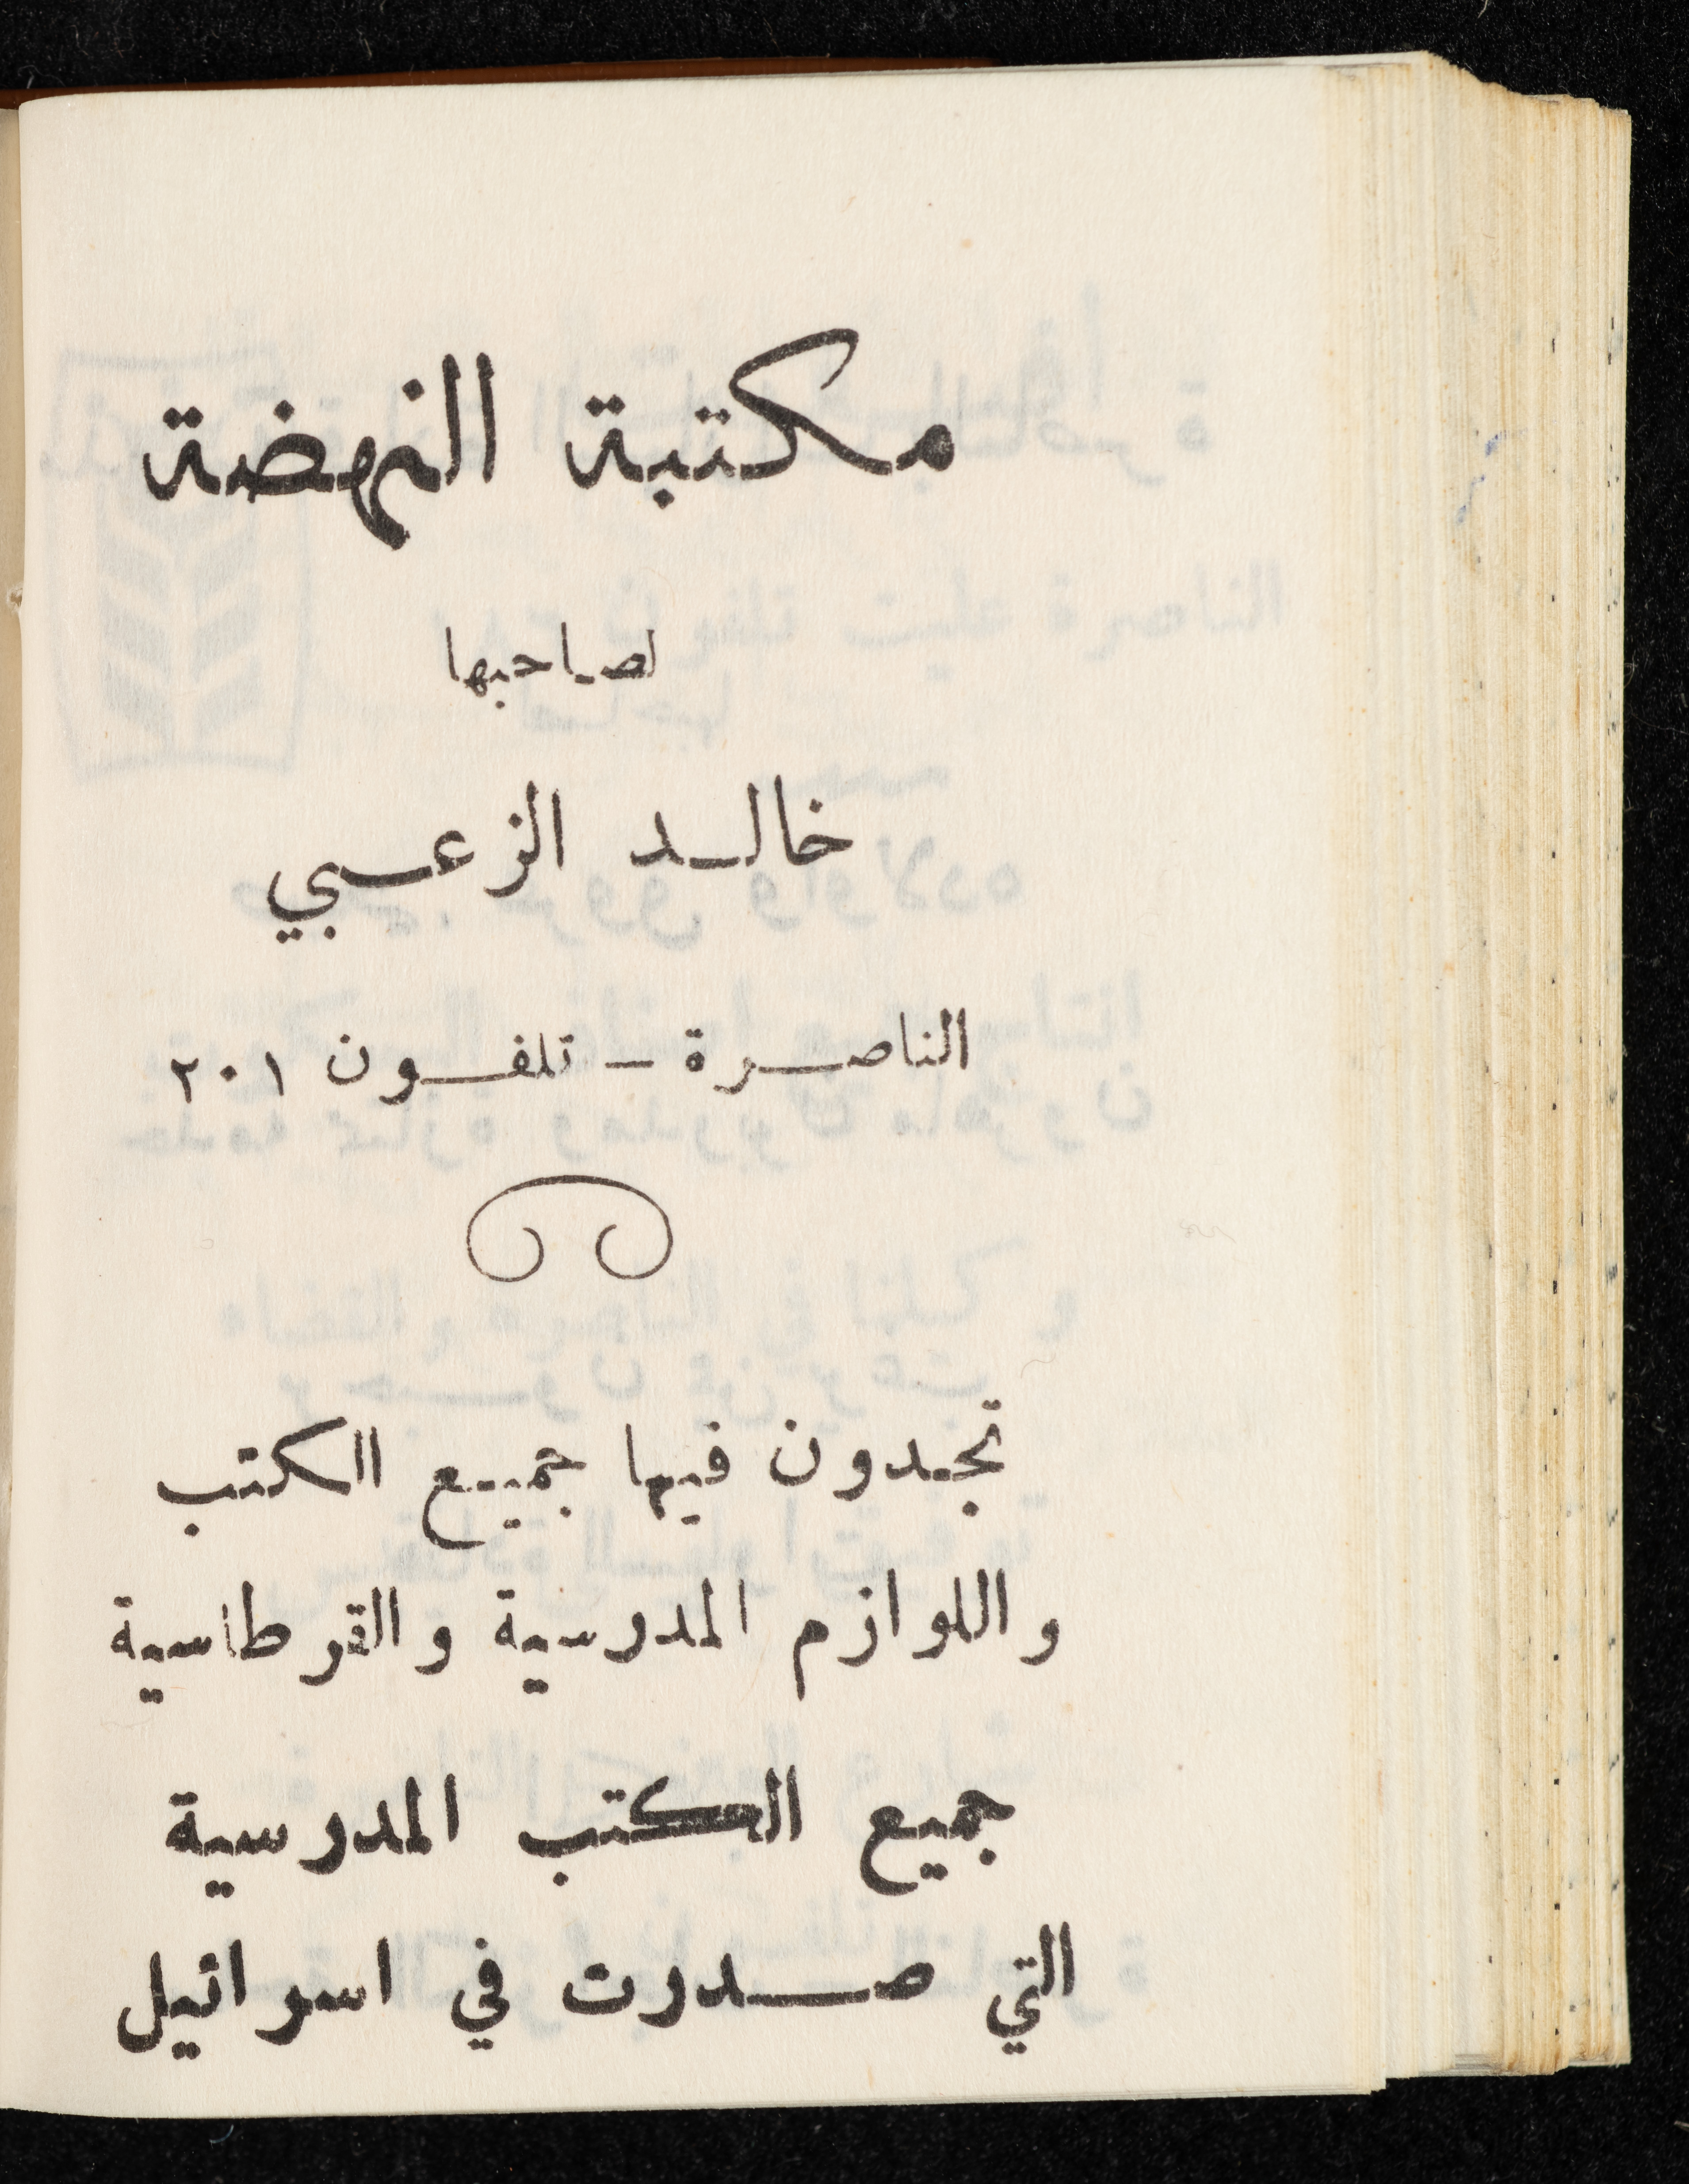 مكتبة النهضة
لصاحبها
خالد الزعبي
الناصرة - تلفون ٢٠١
تجدون فيها جميع الكتب
واللوازم المدرسية والقرطاسية
جميع الكتب المدرسية
التي صدرت في اسرائيل